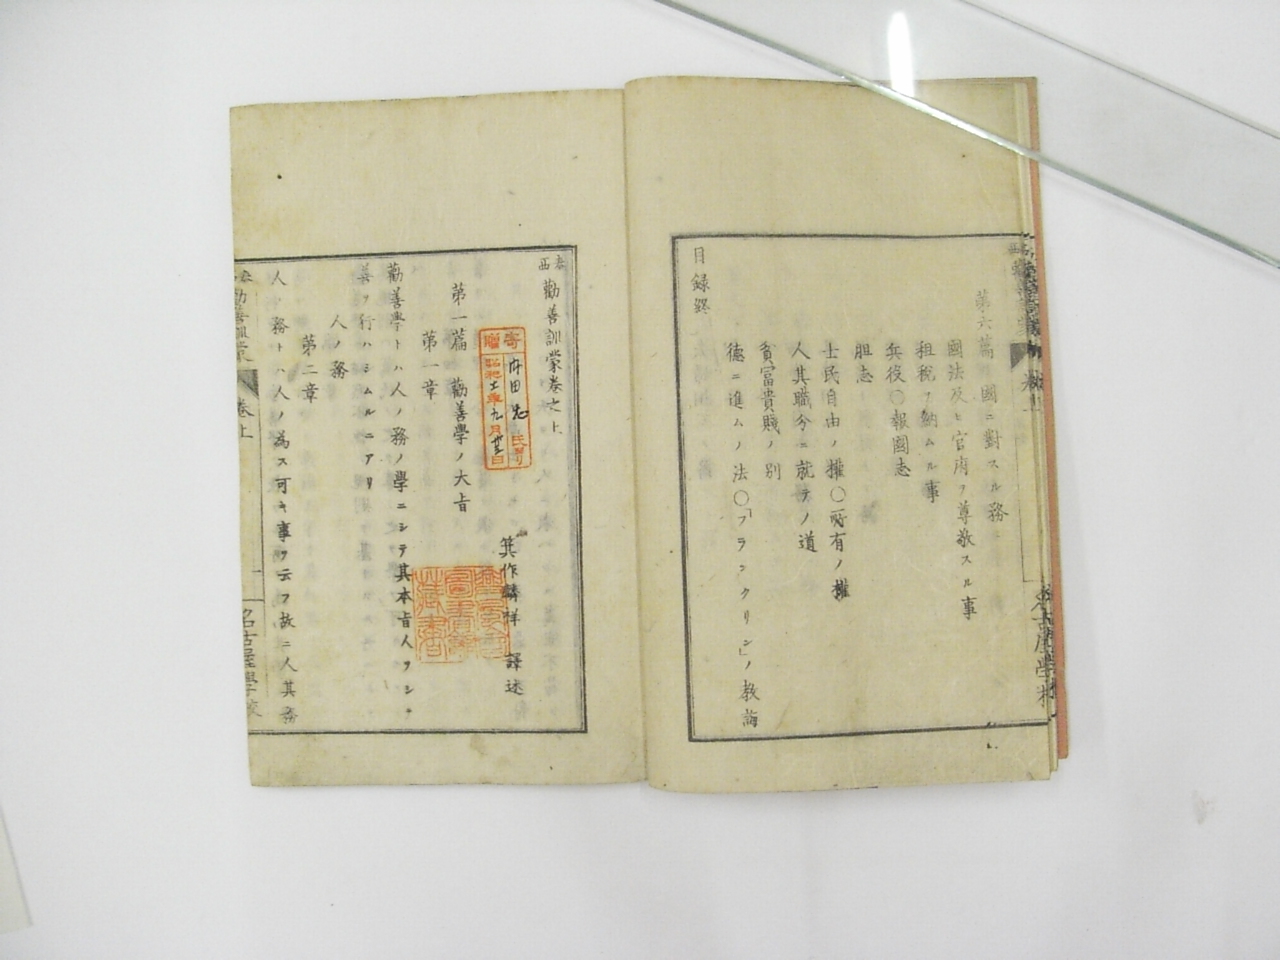 第六篇 國ニ對スル務
國法及ヒ官府ヲ尊敬スル事
租税ヲ納ムル事
兵役〇報國ノ志
胆志
士民自由ノ權〇所有ノ權
人其職分ニ就テノ道
貧富貴賤ノ別
德ニ進ムノ法〇「フランクリン」ノ教誨
目録終
泰西
勸善訓蒙卷之上
箕作麟祥 譯述
寄贈
昭和十一年九月廿三日
第一篇 勸善學ノ大旨
第一章
勸善學トハ人ノ務ノ學ニシテ其本旨人ヲシテ
善ヲ行ハシムルニアリ
人ノ務
第二章
人ノ務トハ人ノ為ス可キ事ヲ云フ故ニ人其務
卷上
名古屋學校